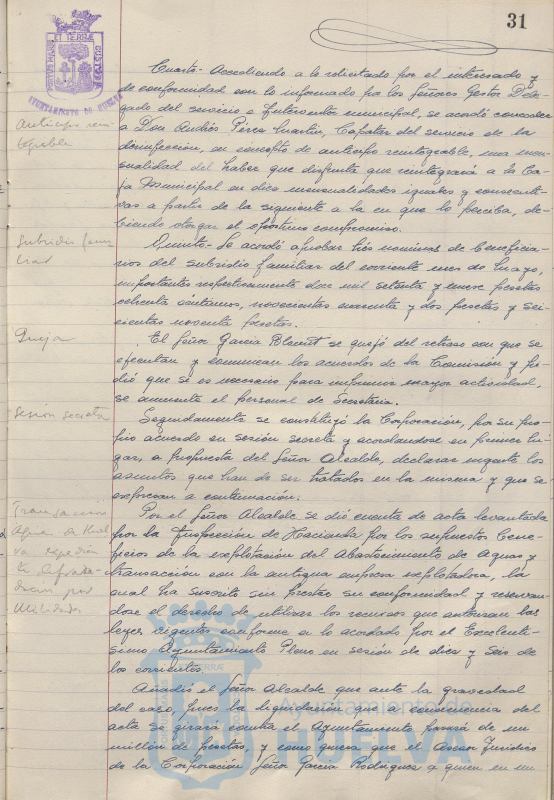 31
AYUNTAMIENTO DE HUELVA
Cuarto.- Accediendo a lo solicitado por el interesado y
de conformidad con lo informado por los Señores Gestor Dele-
gado del servicio e Interventor municipal, se acordó conceder
Anticipo rein-
a Don Andrés Pérez Martín, Capataz del servicio de la
tegrable
desinfección, en concepto de anticipo reintegrable, una men-
sualidad del haber que disfruta que reintegrará a la Ca-
ja Municipal en diez mensualidades iguales y consecuti-
vas a partir de la siguiente a la en que lo perciba, de-
biendo otorgar el oportuno compromiso.
Subsidio fami-
liar
Quinto.- Se acordó aprobar tres nóminas de beneficia-
rios del subsidio familiar del corriente mes de Mayo,
importantes respectivamente doce mil setenta y nueve pesetas
ochenta céntimos, novecientas cuarenta y dos pesetas y sei-
cientas noventa pesetas.
Queja
El Señor García se quejó del retraso con que se
ejecutan y comunican los acuerdos de la Comisión y pi-
dió que si es necesario para imprimir mayor actividad,
se aumente el personal de Secretaría.
Sesión secreta
Seguidamente se constituyó la Corporación, por su pro-
pio acuerdo en sesión secreta y acordandose en primer lu-
gar, a propuesta del Señor Alcalde, declarar urgente los
asuntos que han de ser tratados en la misma y que se
expresan a continuación:
Transacción
Por el Señor Alcalde se dió cuenta de acta levantada
Aguas de Huel-
por la Inspección de Hacienda por los supuestos bene-
va expedien-
ficios de la explotación del Abastecimiento de Aguas y
te defrau-
transacción con la antigua empresa explotadora, la
dación por
cual ha suscrito sin prestar su conformidad y reservan-
Utilidades
dose el derecho de utilizar los recursos que autorizan las
leyes vigentes conforme a lo acordado por el Excelentí-
simo Ayuntamiento Pleno en sesión de diez y seis de
los corrientes.
Añadió el Señor Alcalde que ante la gravedad
del caso, pues la liquidación que a consecuencia del
acta se girará contra el Ayuntamiento pasará de un
millón de pesetas, y como quiera que el Asesor Jurídico
de la Corporación Señor García Rodríguez a quien en un
Ayuntamiento de
HUELVA